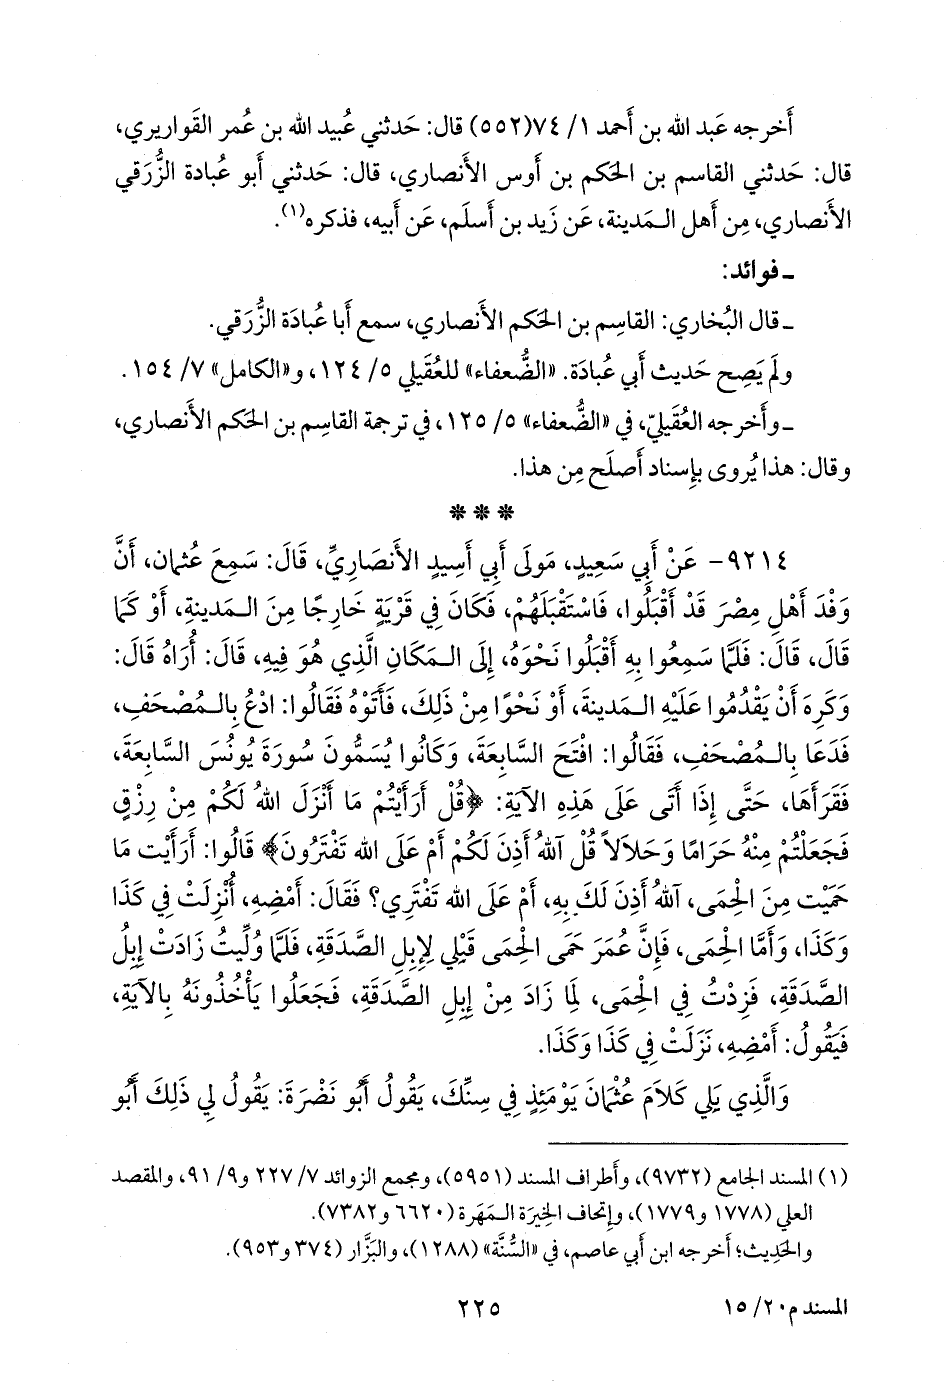 أَخرجه عَبد الله بن أَحمد ١/ ٧٤(٥٥٢) قال: حَدثني عُبيد الله بن عُمر القَواريري،
قال: حَدثني القاسم بن الحَكم بن أَوس الأَنصاري، قال: حَدثني أَبو عُبادة الزُّرَقي
الأَنصاري، مِن أَهل المَدينة، عَن زَيد بن أَسلَم، عَن أَبيه، فذكره(١).
ـ فوائد:
ـ قال البُخاري: القاسِم بن الحَكم الأَنصاري، سمع أَبا عُبادَة الزُّرَقي.
ولَم يَصِح حَديث أَبي عُبادَة. «الضُّعفاء» للعُقَيلي ٥/ ١٢٤، و«الكامل» ٧/ ١٥٤.
ـ وأَخرجه العُقَيليّ، في «الضُّعفاء» ٥/ ١٢٥، في ترجمة القاسِم بن الحَكم الأَنصاري،
وقال: هذا يُروى بإِسناد أَصلَح مِن هذا.
* * *
٩٢١٤- عَنْ أَبِي سَعِيدٍ، مَولَى أَبِي أَسِيدٍ الأَنصَارِيِّ، قَالَ: سَمِعَ عُثمان، أَنَّ
وَفْدَ أَهْلِ مِصْرَ قَدْ أَقْبَلُوا، فَاسْتَقْبَلَهُمْ، فَكَانَ فِي قَرْيَةٍ خَارِجًا مِنَ المَدينةِ، أَوْ كَمَا
قَالَ، قَالَ: فَلَمَّا سَمِعُوا بِهِ أَقْبَلُوا نَحْوَهُ، إِلَى المَكَانِ الَّذِي هُوَ فِيهِ، قَالَ: أُرَاهُ قَالَ:
وَكَرِهَ أَنْ يَقْدُمُوا عَلَيْهِ المَدينةَ، أَوْ نَحْوًا مِنْ ذَلِكَ، فَأَتَوْهُ فَقَالُوا: ادْعُ بِالمُصْحَفِ،
فَدَعَا بِالمُصْحَفِ، فَقَالُوا: افْتَحِ السَّابِعَةَ، وَكَانُوا يُسَمُّونَ سُورَةَ يُونُسَ السَّابِعَةَ،
فَقَرَأَهَا، حَتَّى إِذَا أَتَى عَلَى هَذِهِ الآيَةِ: ﴿قُلْ أَرَأَيْتُمْ مَا أَنْزَلَ اللهُ لَكُمْ مِنْ رِزْقٍ
فَجَعَلْتُمْ مِنْهُ حَرَامًا وَحَلَالاً قُلْ آللهُ أَذِنَ لَكُمْ أَمْ عَلَى الله تَفْتَرُونَ﴾ قَالُوا: أَرَأَيْت مَا
حَمَيْت مِنَ الْحِمَى، آللهُ أَذِنَ لَكَ بِهِ، أَمْ عَلَى الله تَفْتَرِي؟ فَقَالَ: أَمْضِهِ، أُنْزِلَتْ فِي كَذَا
وَكَذَا، وَأَمَّا الْحِمَى، فَإِنَّ عُمَرَ حَمَى الْحِمَى قَبْلِي لِإِبِلِ الصَّدَقَةِ، فَلَمَّا وُلِّيتُ زَادَتْ إِبِلُ
الصَّدَقَةِ، فَزِدْتُ فِي الْحِمَى، لِمَا زَادَ مِنْ إِبِلِ الصَّدَقَةِ، فَجَعَلُوا يَأْخُذُونَهُ بِالآيَةِ،
فَيَقُولُ: أَمْضِهِ، نَزَلَتْ فِي كَذَا وَكَذَا.
وَالَّذِي يَلِي كَلَامَ عُثْمَانَ يَوْمَئِذٍ فِي سِنِّكَ، يَقُولُ أَبُو نَضْرَةَ: يَقُولُ لِي ذَلِكَ أَبُو
(١) المسند الجامع (٩٧٣٢)، وأَطراف المسند (٥٩٥١)، ومجمع الزوائد ٧/ ٢٢٧ و٩/ ٩١، والمقصد
العلي (١٧٧٨ و١٧٧٩)، وإِتحاف الخِيرَة المَهَرة (٦٦٢٠ و٧٣٨٢).
والحَدِيث؛ أَخرجه ابن أَبي عاصم، في «السُّنَّة» (١٢٨٨)، والبَزَّار (٣٧٤ و٩٥٣).
المسند م٢٠/ ١٥
٢٢٥